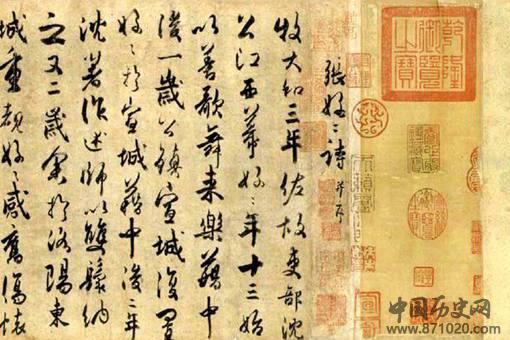 乾隆御覽之寶
張好〻詩 并序
牧大和三年佐故吏部沈
公江西幕好〻年十三始
以善歌舞来樂籍中
後一歲公鎮宣城復置
好〻於宣城籍中後二年
沈著作述師以雙鬟納
之又二歲余於洛陽東
城重覩好〻感舊傷懷
中国历史网
www.871020.com